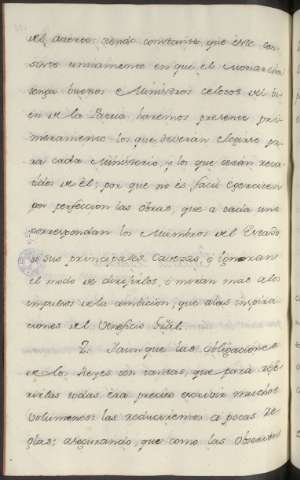 del acierto: siendo constante, que éste con
siste unicamente en que el Monarcha
tenga buenos Ministros celosos del bi
en de la Patria haremos presente pri
meramente los que deverán elegirse pa
ra cada Ministerio, y los que serán
de él; por que no es facil
por perfeccion las obras, que a cada uno
correspondan los Miembros del Estado
si sus principales Cavezas, ó ignoran
el modo de dirigirlos, ó miran mas alos
impulsos dela ambicion, que alas inspira
ciones del Veneficio
2. Y aunque las obligaciones
de los Reyes son tantas, que para refe
rirlas todas, era preciso escrivir muchos
Volumenes; las reduciremos a pocas Re
glas; asegurando, que como las